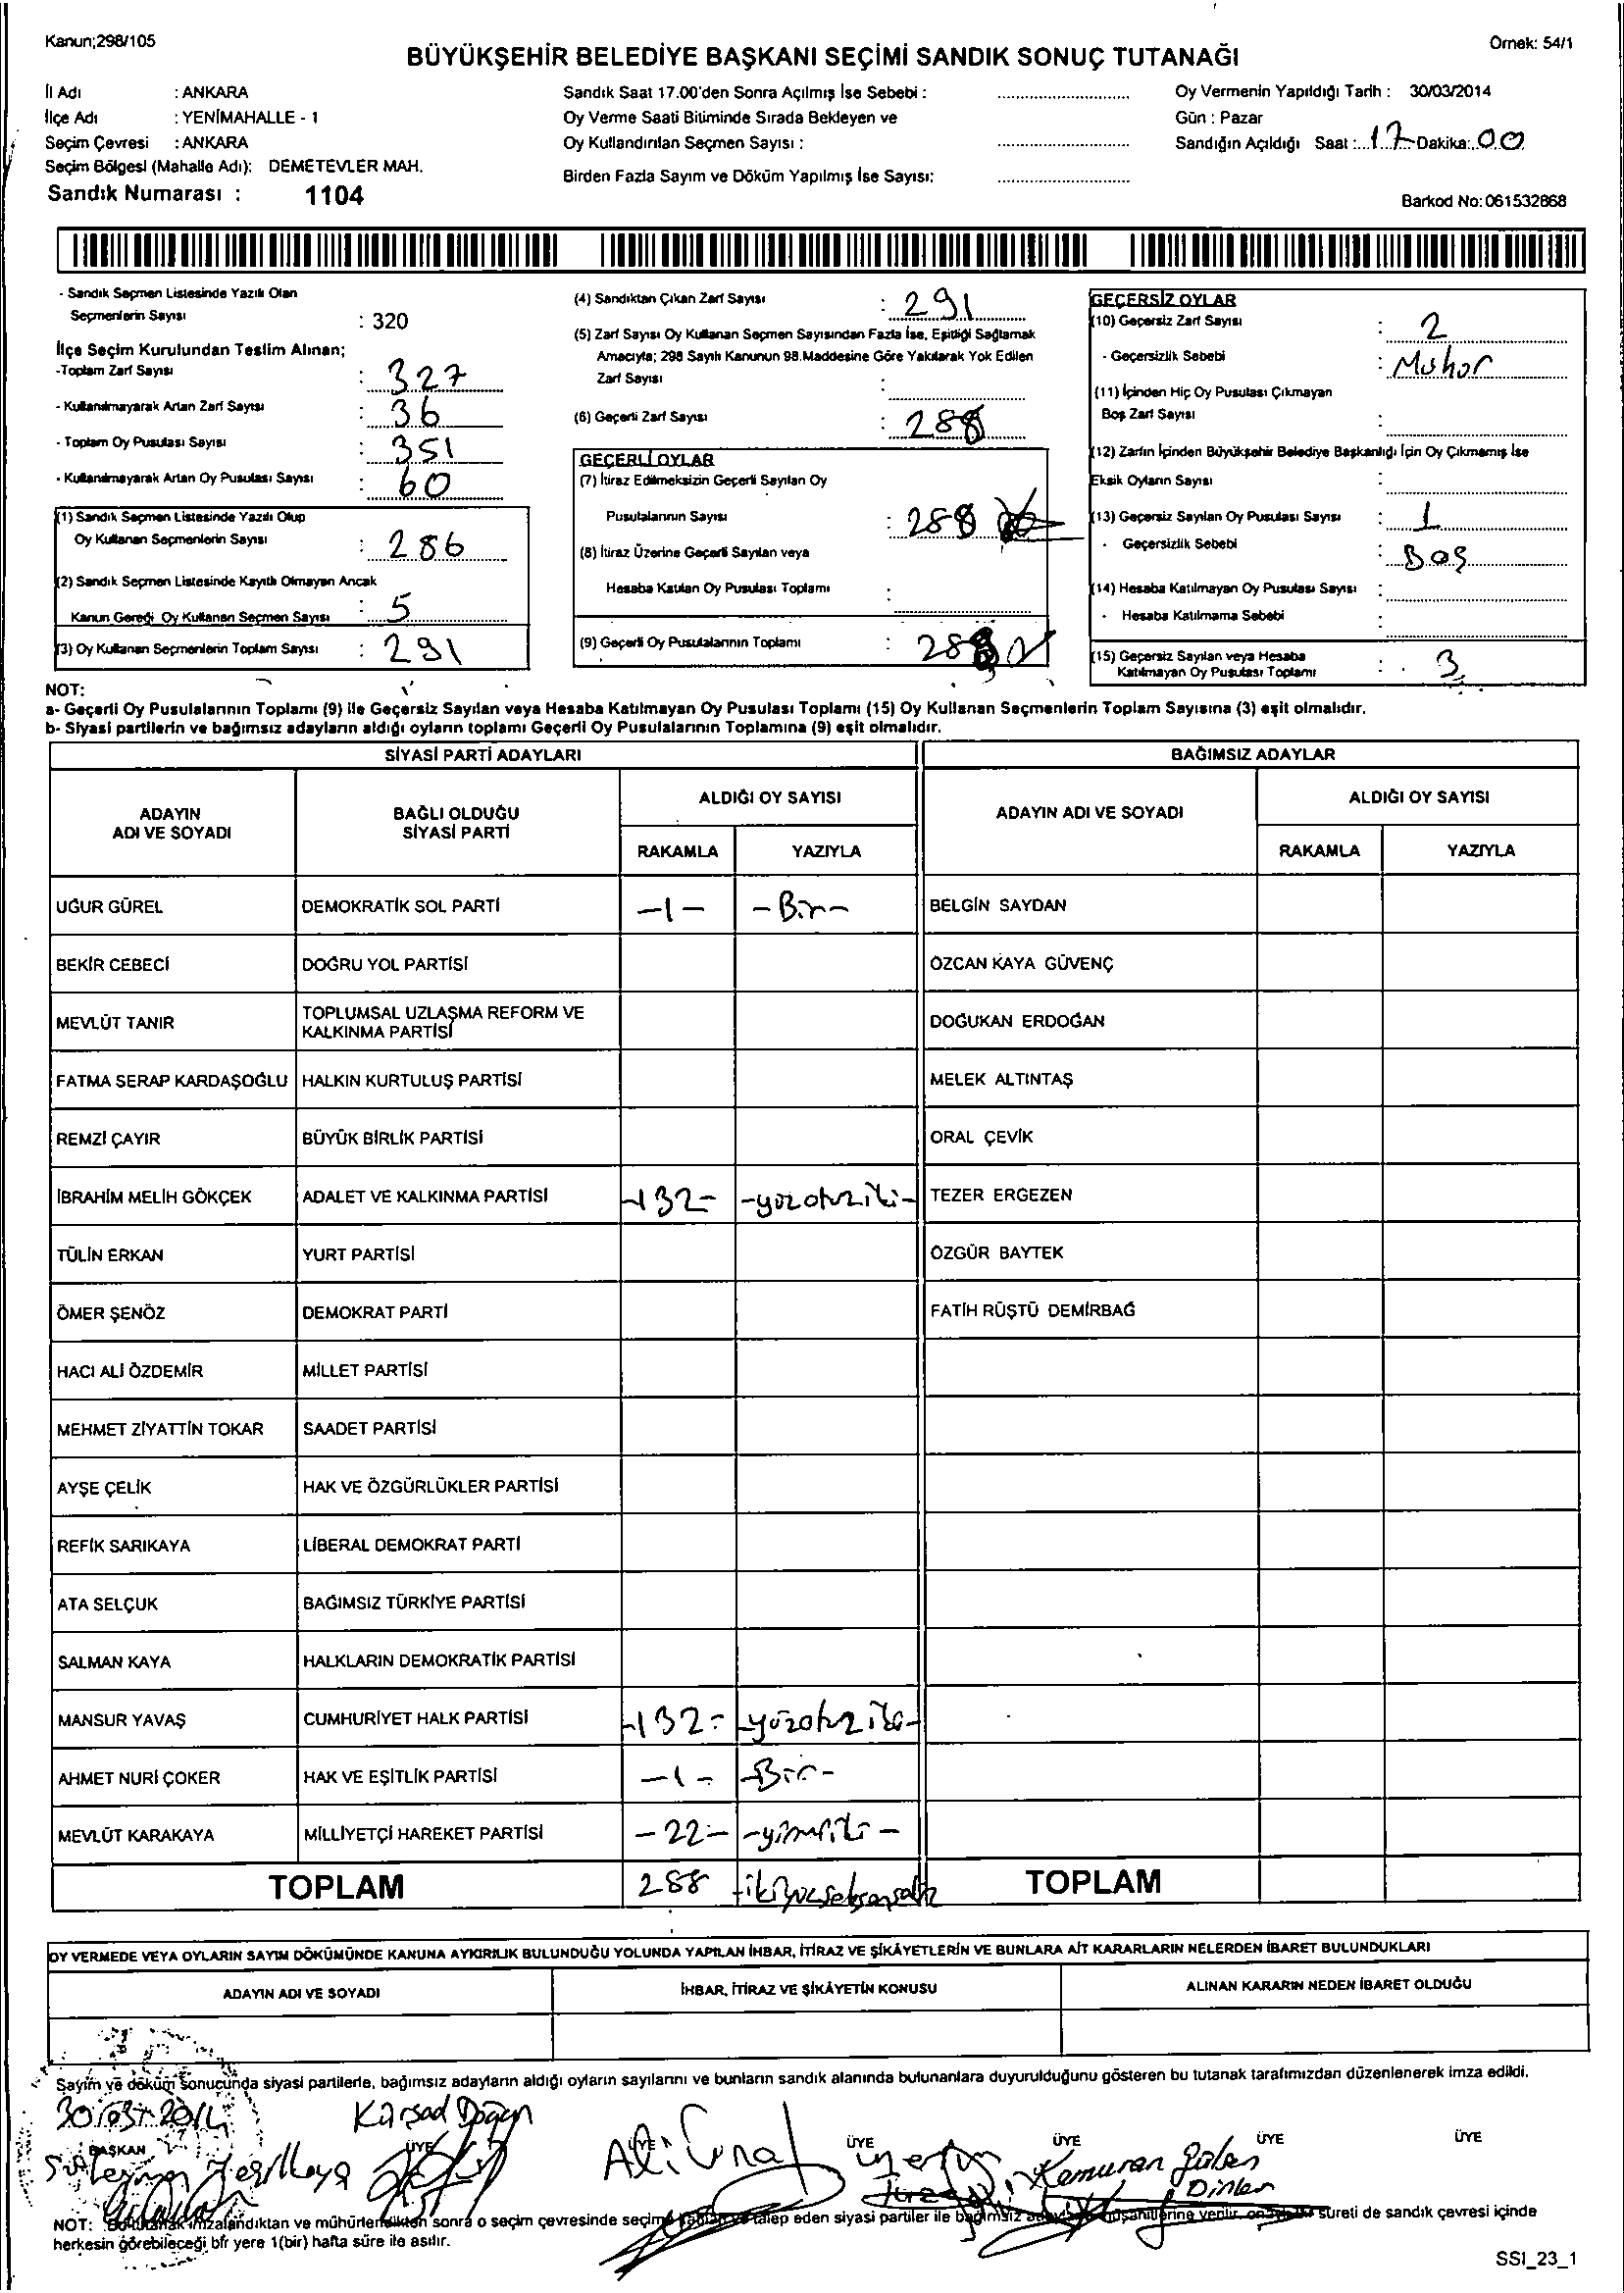 Kanun;298/105
Örnek: 54/1
BÜYÜKŞEHİR BELEDİYE BAŞKANI SEÇİMİ SANDIK SONUÇ TUTANAĞI
İl Adı : ANKARA
İlçe Adı : YENİMAHALLE - 1
Seçim Çevresi : ANKARA
Seçim Bölgesi (Mahalle Adı): DEMETEVLER MAH.
Sandık Numarası : 1104
Sandık Saat 17.00'den Sonra Açılmış İse Sebebi :
Oy Verme Saati Bitiminde Sırada Bekleyen ve
Oy Kullandırılan Seçmen Sayısı :
Birden Fazla Sayım ve Döküm Yapılmış İse Sayısı:
Oy Vermenin Yapıldığı Tarih : 30/03/2014
Gün : Pazar
Sandığın Açıldığı Saat : 17 Dakika: 00
Barkod No: 061532868
- Sandık Seçmen Listesinde Yazılı Olan
Seçmenlerin Sayısı : 320
İlçe Seçim Kurulundan Teslim Alınan;
-Toplam Zarf Sayısı : 327
- Kullanılmayarak Artan Zarf Sayısı : 36
- Toplam Oy Pusulası Sayısı : 351
- Kullanılmayarak Artan Oy Pusulası Sayısı : 60
(1) Sandık Seçmen Listesinde Yazılı Olup
Oy Kullanan Seçmenlerin Sayısı : 286
(2) Sandık Seçmen Listesinde Kayıtlı Olmayan Ancak
Kanun Gereği Oy Kullanan Seçmen Sayısı : 5
(3) Oy Kullanan Seçmenlerin Toplam Sayısı : 291
(4) Sandıktan Çıkan Zarf Sayısı : 291
(5) Zarf Sayısı Oy Kullanan Seçmen Sayısından Fazla İse, Eşitliği Sağlamak
Amacıyla; 298 Sayılı Kanunun 98.Maddesine Göre Yakılarak Yok Edilen
Zarf Sayısı :
(6) Geçerli Zarf Sayısı : 288
GEÇERLİ OYLAR
(7) İtiraz Edilmeksizin Geçerli Sayılan Oy
Pusulalarının Sayısı : 288
(8) İtiraz Üzerine Geçerli Sayılan veya
Hesaba Katılan Oy Pusulası Toplamı :
(9) Geçerli Oy Pusulalarının Toplamı : 288
GEÇERSİZ OYLAR
(10) Geçersiz Zarf Sayısı : 2
- Geçersizlik Sebebi : Mühür
(11) İçinden Hiç Oy Pusulası Çıkmayan
Boş Zarf Sayısı :
(12) Zarfın İçinden Büyükşehir Belediye Başkanlığı İçin Oy Çıkmamış İse
Eksik Oyların Sayısı :
(13) Geçersiz Sayılan Oy Pusulası Sayısı : 1
- Geçersizlik Sebebi : Boş
(14) Hesaba Katılmayan Oy Pusulası Sayısı :
- Hesaba Katılmama Sebebi :
(15) Geçersiz Sayılan veya Hesaba
Katılmayan Oy Pusulası Toplamı : 3
NOT:
a- Geçerli Oy Pusulalarının Toplamı (9) ile Geçersiz Sayılan veya Hesaba Katılmayan Oy Pusulası Toplamı (15) Oy Kullanan Seçmenlerin Toplam Sayısına (3) eşit olmalıdır.
b- Siyasi partilerin ve bağımsız adayların aldığı oyların toplamı Geçerli Oy Pusulalarının Toplamına (9) eşit olmalıdır.
SİYASİ PARTİ ADAYLARI BAĞIMSIZ ADAYLAR
ADAYIN ADI VE SOYADI BAĞLI OLDUĞU SİYASİ PARTİ ALDIĞI OY SAYISI ADAYIN ADI VE SOYADI ALDIĞI OY SAYISI
RAKAMLA YAZIYLA RAKAMLA YAZIYLA
UĞUR GÜREL DEMOKRATİK SOL PARTİ -1- -Bir- BELGİN SAYDAN
BEKİR CEBECİ DOĞRU YOL PARTİSİ ÖZCAN KAYA GÜVENÇ
MEVLÜT TANIR TOPLUMSAL UZLAŞMA REFORM VE KALKINMA PARTİSİ DOĞUKAN ERDOĞAN
FATMA SERAP KARDAŞOĞLU HALKIN KURTULUŞ PARTİSİ MELEK ALTINTAŞ
REMZİ ÇAYIR BÜYÜK BİRLİK PARTİSİ ORAL ÇEVİK
İBRAHİM MELİH GÖKÇEK ADALET VE KALKINMA PARTİSİ -132- -yüzotuziki- TEZER ERGEZEN
TÜLİN ERKAN YURT PARTİSİ ÖZGÜR BAYTEK
ÖMER ŞENÖZ DEMOKRAT PARTİ FATİH RÜŞTÜ DEMİRBAĞ
HACI ALİ ÖZDEMİR MİLLET PARTİSİ
MEHMET ZİYATTİN TOKAR SAADET PARTİSİ
AYŞE ÇELİK HAK VE ÖZGÜRLÜKLER PARTİSİ
REFİK SARIKAYA LİBERAL DEMOKRAT PARTİ
ATA SELÇUK BAĞIMSIZ TÜRKİYE PARTİSİ
SALMAN KAYA HALKLARIN DEMOKRATİK PARTİSİ
MANSUR YAVAŞ CUMHURİYET HALK PARTİSİ -132- -yüzotuziki-
AHMET NURİ ÇOKER HAK VE EŞİTLİK PARTİSİ -1- -Bir-
MEVLÜT KARAKAYA MİLLİYETÇİ HAREKET PARTİSİ -22- -yirmiiki-
TOPLAM 288 -ikiyüzseksensekiz TOPLAM
OY VERMEDE VEYA OYLARIN SAYIM DÖKÜMÜNDE KANUNA AYKIRILIK BULUNDUĞU YOLUNDA YAPILAN İHBAR, İTİRAZ VE ŞİKÂYETLERİN VE BUNLARA AİT KARARLARIN NELERDEN İBARET BULUNDUKLARI
ADAYIN ADI VE SOYADI İHBAR, İTİRAZ VE ŞİKÂYETİN KONUSU ALINAN KARARIN NEDEN İBARET OLDUĞU
Sayım ve döküm sonucunda siyasi partilerle, bağımsız adayların aldığı oyların sayılarını ve bunların sandık alanında bulunanlara duyurulduğunu gösteren bu tutanak tarafımızdan düzenlenerek imza edildi.
30/03/2014 Kürşad Doğan
BAŞKAN ÜYE ÜYE ÜYE ÜYE ÜYE ÜYE
Süleyman Yeşilkaya Ali Ünal Kamuran Gülen
Dinler
NOT: Bu tutanak imzalandıktan ve mühürlendikten sonra o seçim çevresinde seçime katılan ve talep eden siyasi partiler ile bağımsız müşahitlerine verilir. sureti de sandık çevresi içinde
herkesin görebileceği bir yere 1(bir) hafta süre ile asılır.
SSI_23_1